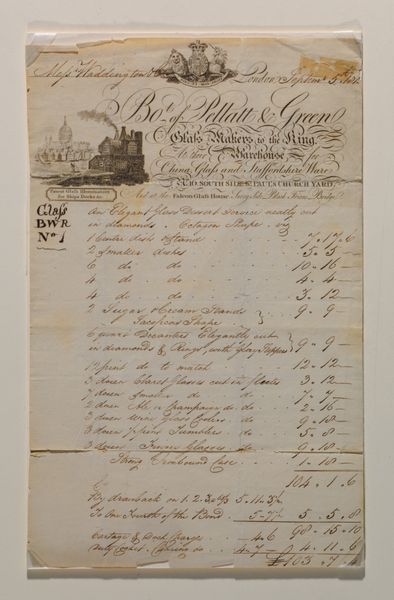 Mess.rs Waddington & Co London Septem.r 5
Bo.t of Pellatt & Green
Glass Makers to the King
At their Warehouse for
China, Glass and Staffordshire Ware
No. 16, SOUTH SIDE ST. PAUL'S CHURCH YARD,
And at the Falcon Glass-House Surry Side Black Friars Bridge
Patent Glass Illuminators
for Ships Decks &c.
Glass
BWR
No 1
An Elegant Glass Desert Service neatly cut
in diamonds. Octagon Shape. viz
1 Centre dish & Stand 7.17.6
2 smaller dishes 5.5-
6 do do 10.16-
4 do do 4.4-
4 do do 3.12
2 Sugar & Cream Stands 9.9-
Shape
6 quart Decanters Elegantly cut
in diamonds & Rings, with Stoppers 9.9-
12 pint do to match 12.12-
3 dozen Claret Glasses cut in flutes 3.12
7 dozen smaller do do 7.7-
2 dozen Ale or Champaign do do 2.16-
3 dozen Wine Glass Coolers do 9.18-
3 dozen pint Tumblers do 5.8-
3 dozen Glasses do 9.18-
Strong Ironbound Case 1.18-
104.1.6
By drawback on 1.2.3.
To One Fourth of the Bond 5.5.8
98.15.10
Cartage & Dock Charge 4.6
4.7- 4.11.6
£103.7.4